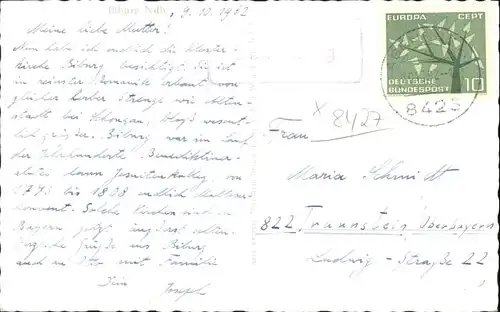 9.10.1962
Meine liebe Mutter!
Nun habe ich endlich die Kloster-
kirche Biburg besichtigt. Sie ist
in reinster Romanik erbaut von
gleicher herber Strenge wie Alten-
stadt bei Schongau, bloß wesent-
lich größer. Biburg war im Lauf
der Jahrhunderte Benediktiner-
dann Jesuitenkolleg, von
bis 1808 endlich Malteser-
konvent. Solche Kirchen sind in
Bayern jetzt selten.
Grüße aus Biburg
auch an Otto mit Familie
Dein
Joseph
EUROPA CEPT
DEUTSCHE
BUNDESPOST 10
8423
x 8427
Frau
Maria Schmidt
822 Traunstein Oberbayern
Ludwig-Straße 22